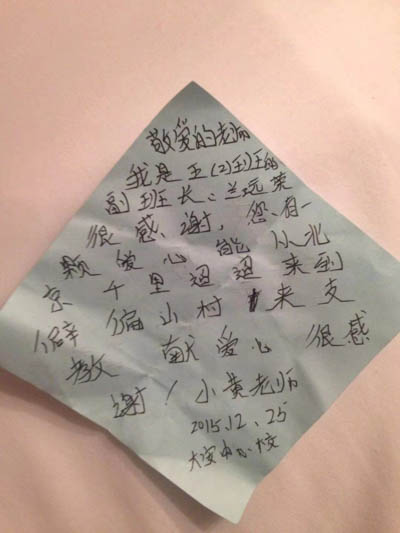 敬爱的老师
我是五(2)班的
副班长:兰玩荣
很感谢,您有一
颗爱心能从北
京千里迢迢来到
僻偏山村来支
教献爱心很感
谢!小黄老师
2015.12.25
大安中心小校